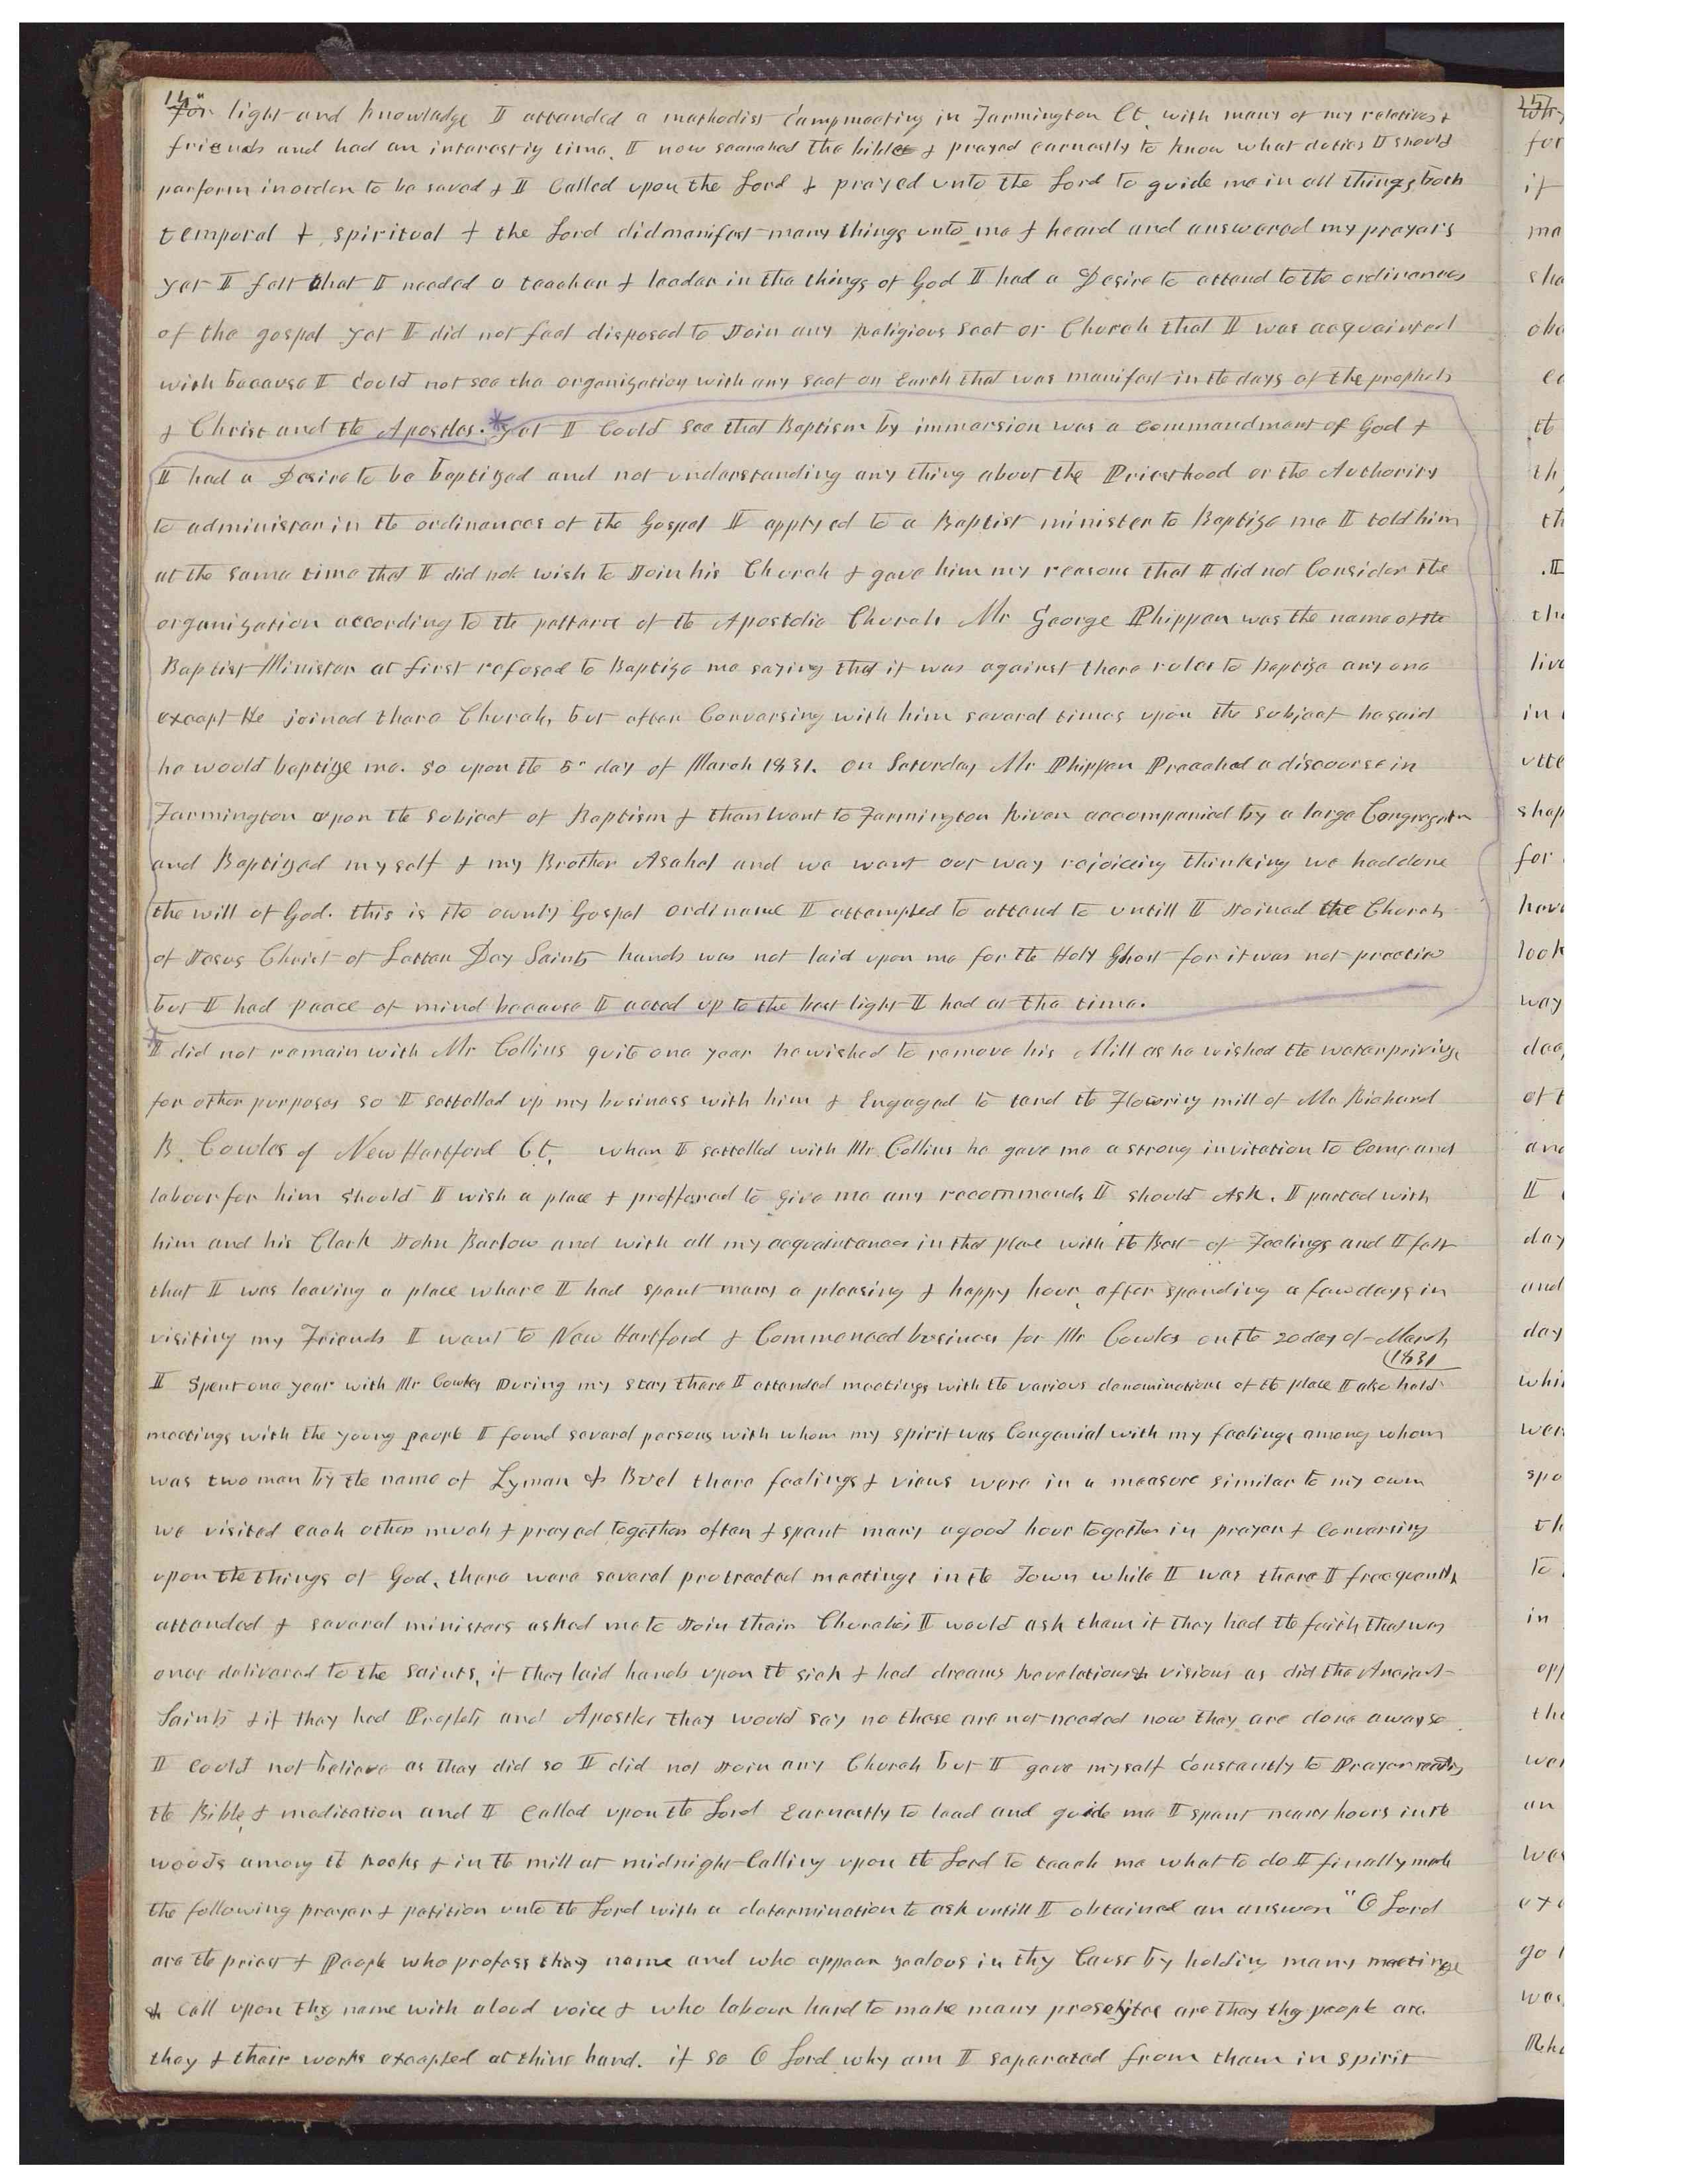 14"
for light and knowledge I attended a methodist Campmeeting in Farmington Ct. with many of my relatives &
friends and had an interestiy time. I now searched the bible & prayed earnestly to know what duties I should
perform inorder to be saved & I Called upon the Lord & prayed unto the Lord to guide me in all things, both
temporal & spiritual & the Lord did manifest many things unto me & heard and answered my prayers
yet I felt that I needed a teacher & leader in the things of God I had a Desire to attend to the ordinances
of the gospel yet I did not feel disposed to Join any religious sect or Church that I was acquainted
with because I Could not see the organization with any sect on Earth that was manifest in the days of the prophets
& Christ and the Apostles. * yet I Could see that Baptism by immersion was a commandment of God &
I had a Desire to be baptized and not understanding any thing about the Priesthood or the Authority
to administer in the ordinances of the Gospel I applyed to a Baptist minister to Baptize me I told him
at the same time that I did not wish to Join his Church & gave him my reasons that I did not Consider the
organization according to the patterre of the Apostolic Church Mr George Phippen was the name of the
Baptist Minister at first refused to Baptize me saying that it was against there rules to Baptize any one
except He joined there Church, but after Conversing with him several times upon the subject he said
he would baptize me. so upon the 5" day of March 1831. on Saturday Mr Phippen Preached a discourse in
Farmington upon the subject of Baptism & then went to Farmington River accompanied by a large Congregatn
and Baptized myself & my Brother Asahel and we went our way rejoiceing thinking we had done
the will of God. this is the ownly Gospel ordinance I attempted to attend to untill I Joined the Church
of Jesus Christ of Latter Day Saints hands was not laid upon me for the Holy Ghost for it was not practice
but I had peace of mind because I acted up to the best light I had at the time.
* I did not remain with Mr Collins quite one year he wished to remove his Mill as he wished the water privige
for other purposes so I settelled up my business with him & Engaged to tend the Flowring mill of Mr Richard
B. Cowles of New Hartford Ct. when I settelled with Mr. Collins he gave me a strong invitation to Come and
labour for him should I wish a place & proffered to give me any recommends I should Ask. I parted with
him and his Clerk John Barlow and with all my acquaintances in that place with the Best of Feelings and I felt
that I was leaving a place where I had spent many a pleasing & happy hour, after spending a few days in
visiting my Friends I went to New Hartford & Commenced business for Mr Cowles on the 20 day of March
1831
I Spent one year with Mr Cowles During my stay there I attended meetings with the various denominations of the place I also held
meetings with the young people I found several persons with whom my spirit was Congenial with my feelings among whom
was two men by the name of Lyman & Buel there feelings & views were in a measure similar to my own
we visited each other much & prayed together often & spent many a good hour together in prayer & Conversing
upon the things of God, there were several protracted meetings in the Town while I was there I freequently
attended & several ministers asked me to Join their Churches I would ask them if they had the faith that was
once delivered to the saints, if they laid hands upon the sick & had dreams Revelations & visions as did the Ancient
Saints & if they had Prophets and Apostles they would say no these are not needed now they are done away so
I Could not believe as they did so I did not Join any Church but I gave myself Constantly to Prayer reading
the Bible & meditation and I Called upon the Lord Earnestly to lead and guide me I spent many hours in the
woods among the Rocks & in the mill at midnight Calling upon the Lord to teach me what to do I finally made
the following prayer & petition unto the Lord with a determination to ask untill I obtained an answer "O Lord
are the priest & People who profess thy name and who appear zealous in thy Cause by holding many meetings
& Call upon thy name with aloud voice & who labour hard to make many proselytes are they thy people are
they & their works excepted at thine hand. if so O Lord why am I separated from them in spirit